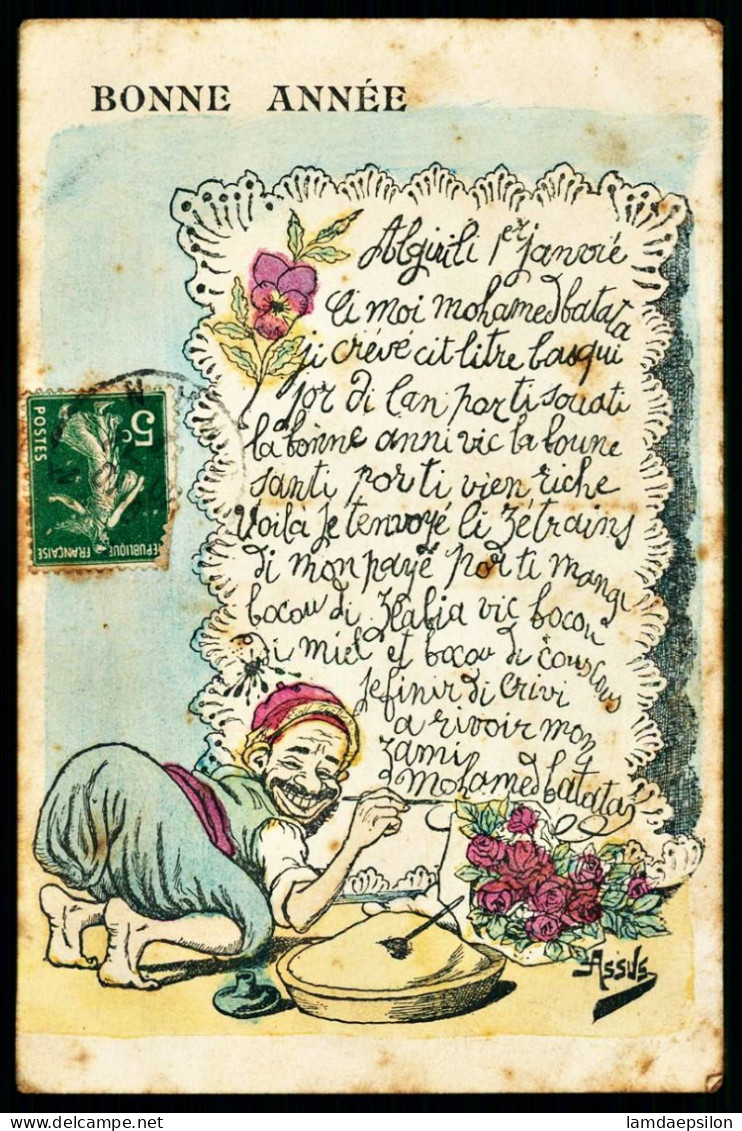 BONNE ANNÉE
Algirili 1er janvié
Ci moi mohamed batata
ji crévé cit litre basqui
jor di l'an por ti souati
la bonne anni vic la boune
santi por ti vien riche
Voilà je t'envoyé li zétrains
di mon payé por ti mangi
bocou di Zlabia vic bocou
di miel et bocou di couscous
Je finir di crivi
a rivoir mon
zami
mohamed batata
5c
POSTES
REPUBLIQUE FRANÇAISE
ASSUS
lamdaepsilon